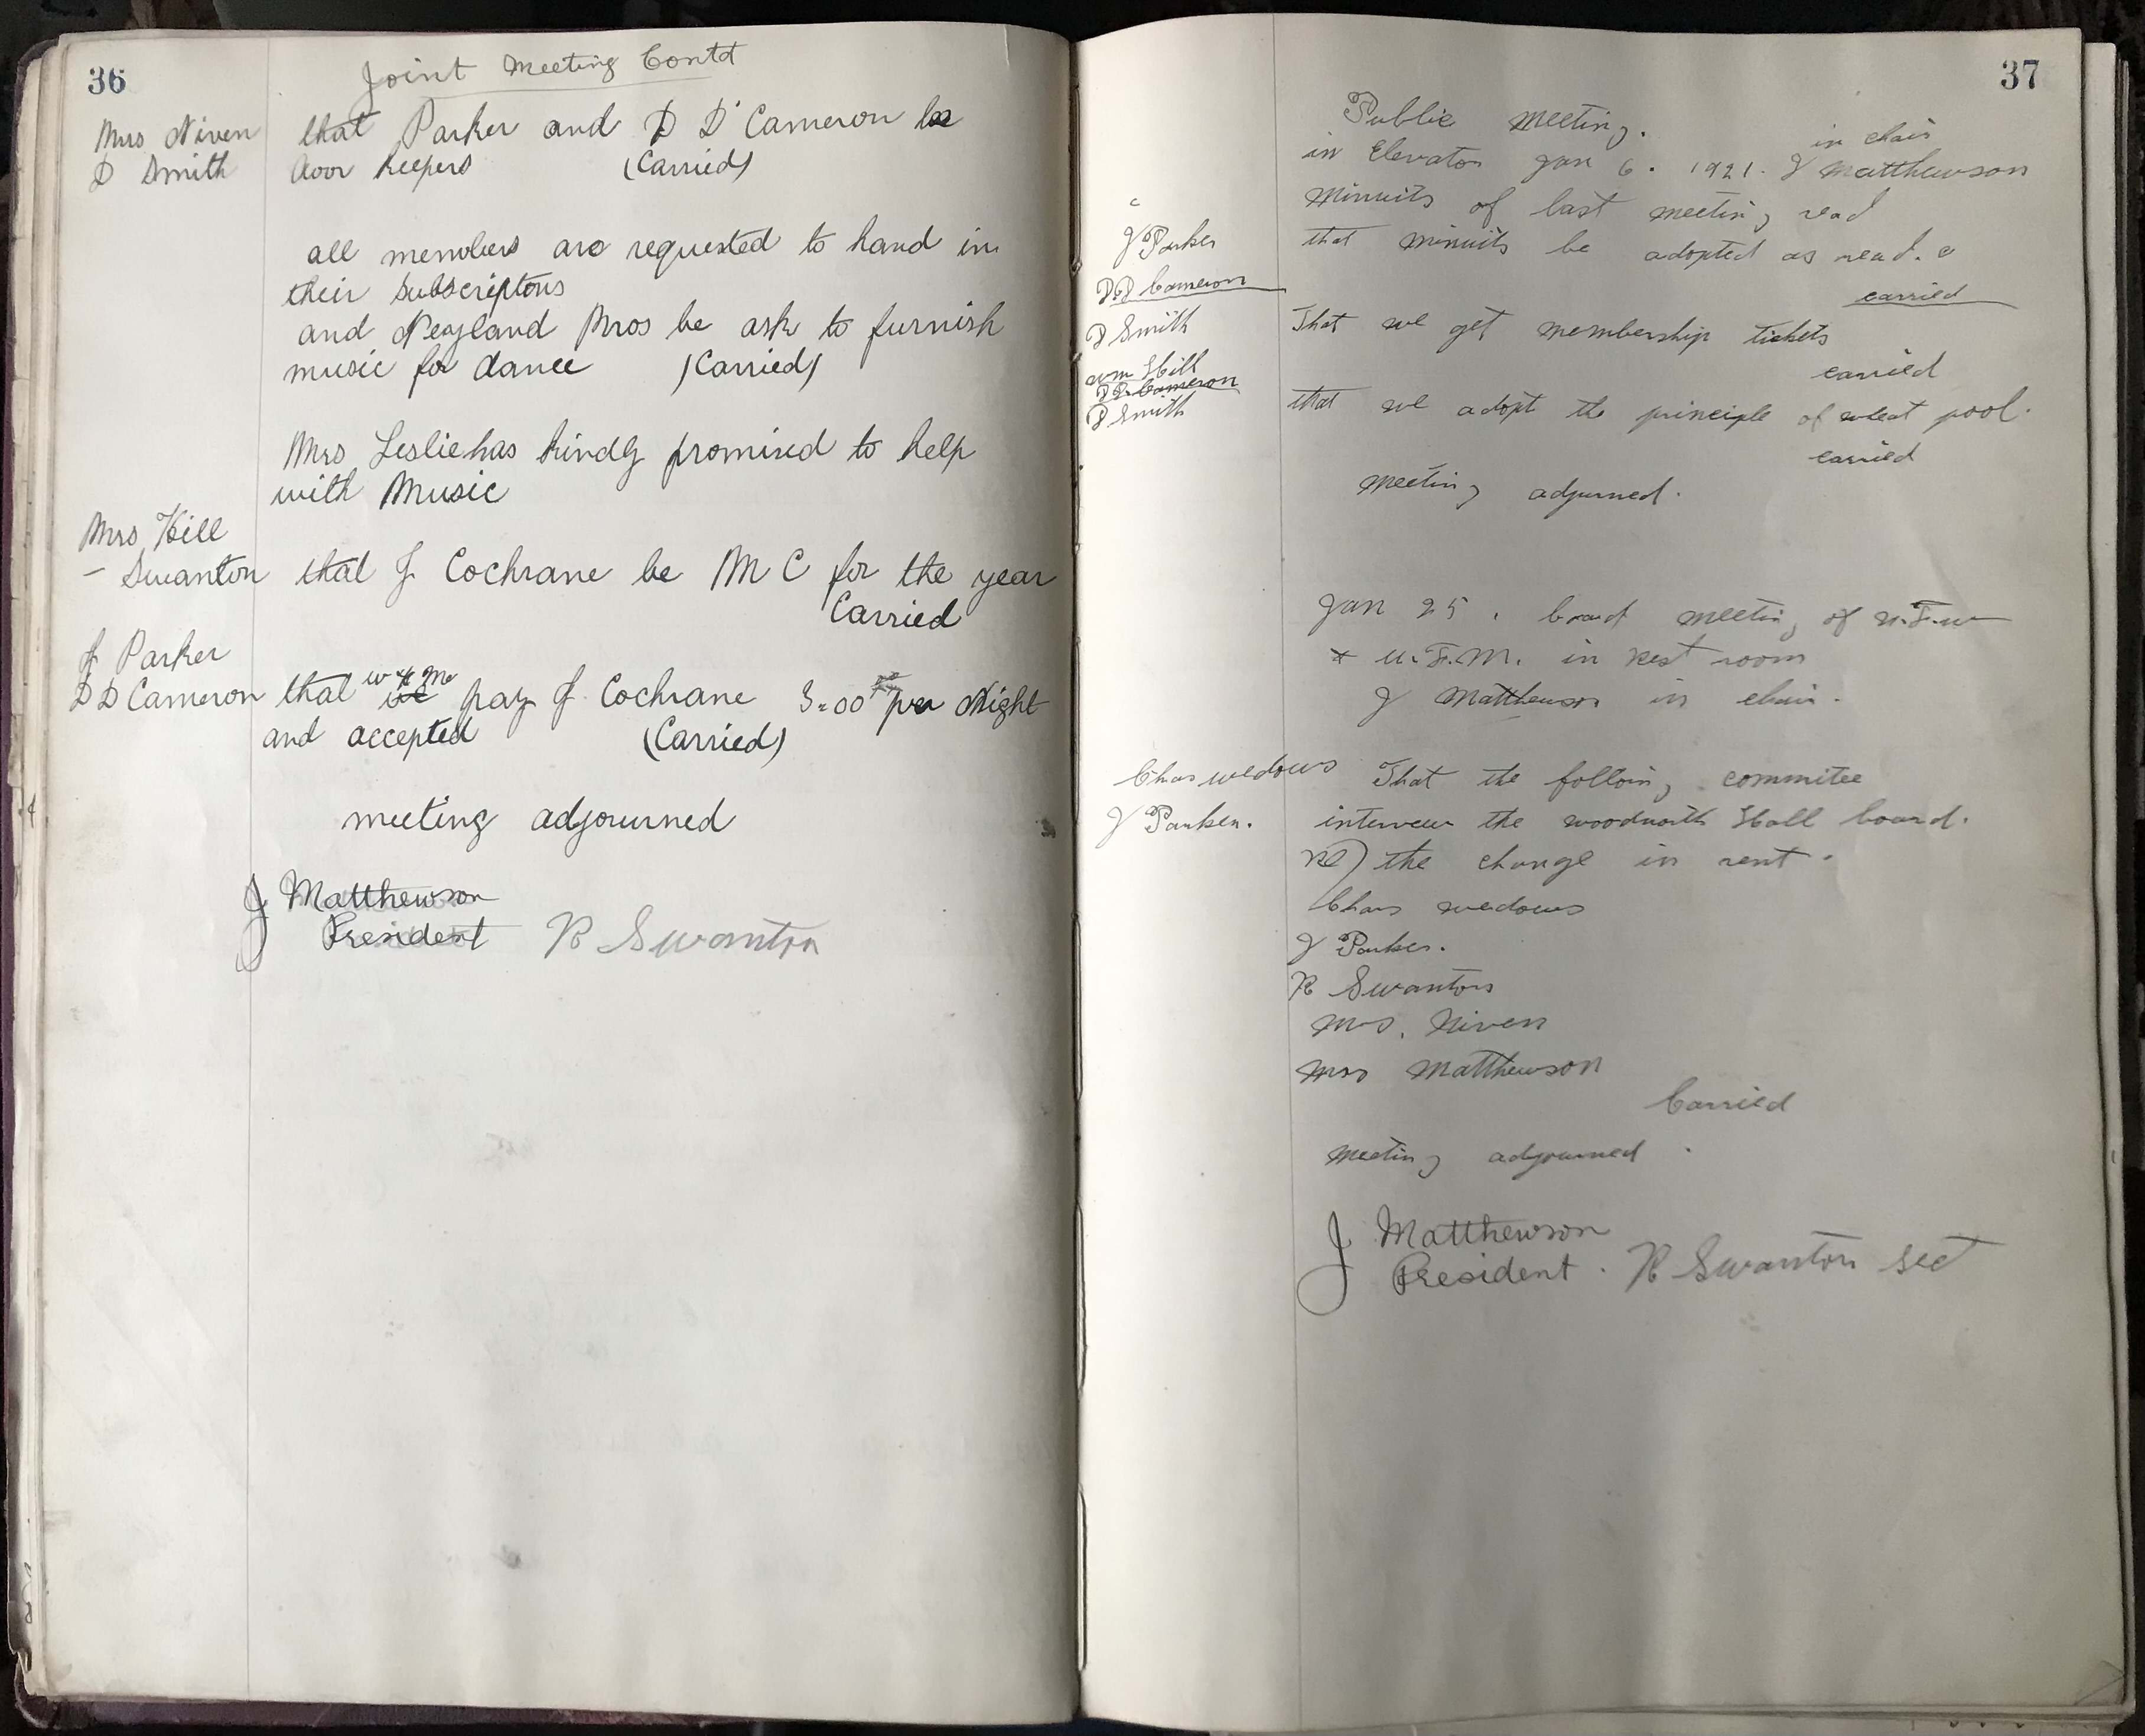 36
Joint Meeting Contd
Mrs Niven that Parker and D D Cameron be
D Smith door keepers (Carried)
all members are requested to hand in
their subscriptons
and Neyland Bros be ask to furnish
music for dance (Carried)
Mrs Leslie has kindly promised to help
with Music
Mrs Hill
- Swanton that J Cochrane be M C for the year
Carried
J Parker
D D Cameron that we pay J. Cochrane 3.00 per Night
and accepted (Carried)
meeting adjourned
J Matthewson
President R Swanton
37
Public meeting.
in chair
in Elevator Jan 6. 1921. J Matthewson
Minuits of last meeting read
J Parker that minuits be adopted as read.
D D Cameron carried
D Smith That we get membership tickets
Wm Hill carried
D D Cameron
D Smith that we adopt the principle of wheat pool.
carried
meeting adjurned.
Jan 25. board meeting of U.F.W
+ U.F.M. in Rest room
J Matthewson in chair.
Chas wedows That the following commitee
J Parker. interveiw the woodnorth Hall board.
re) the change in rent.
Chas wedows
J Parker.
R Swanton
Mrs. Niven
Mrs Matthewson
Carried
meeting adjourned.
J Matthewson
President. R Swanton sect